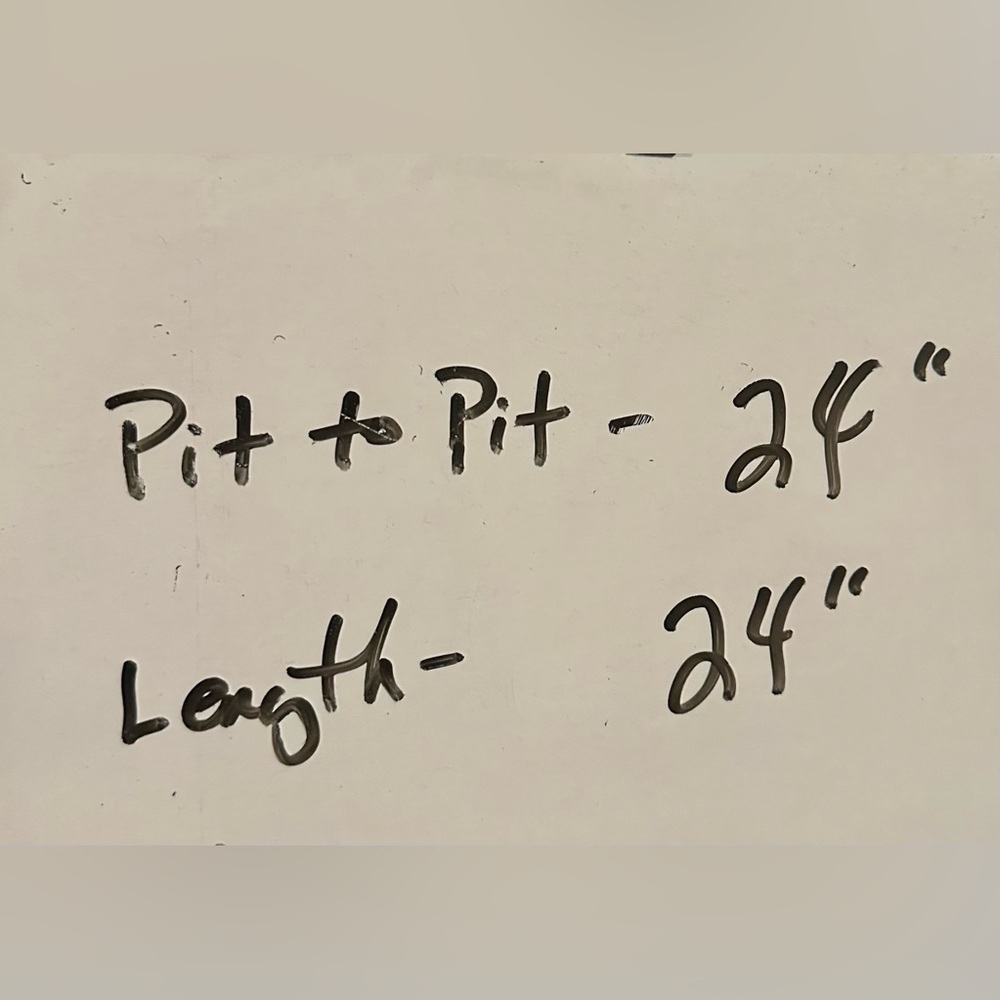 Pit to Pit - 24"
Length - 24"